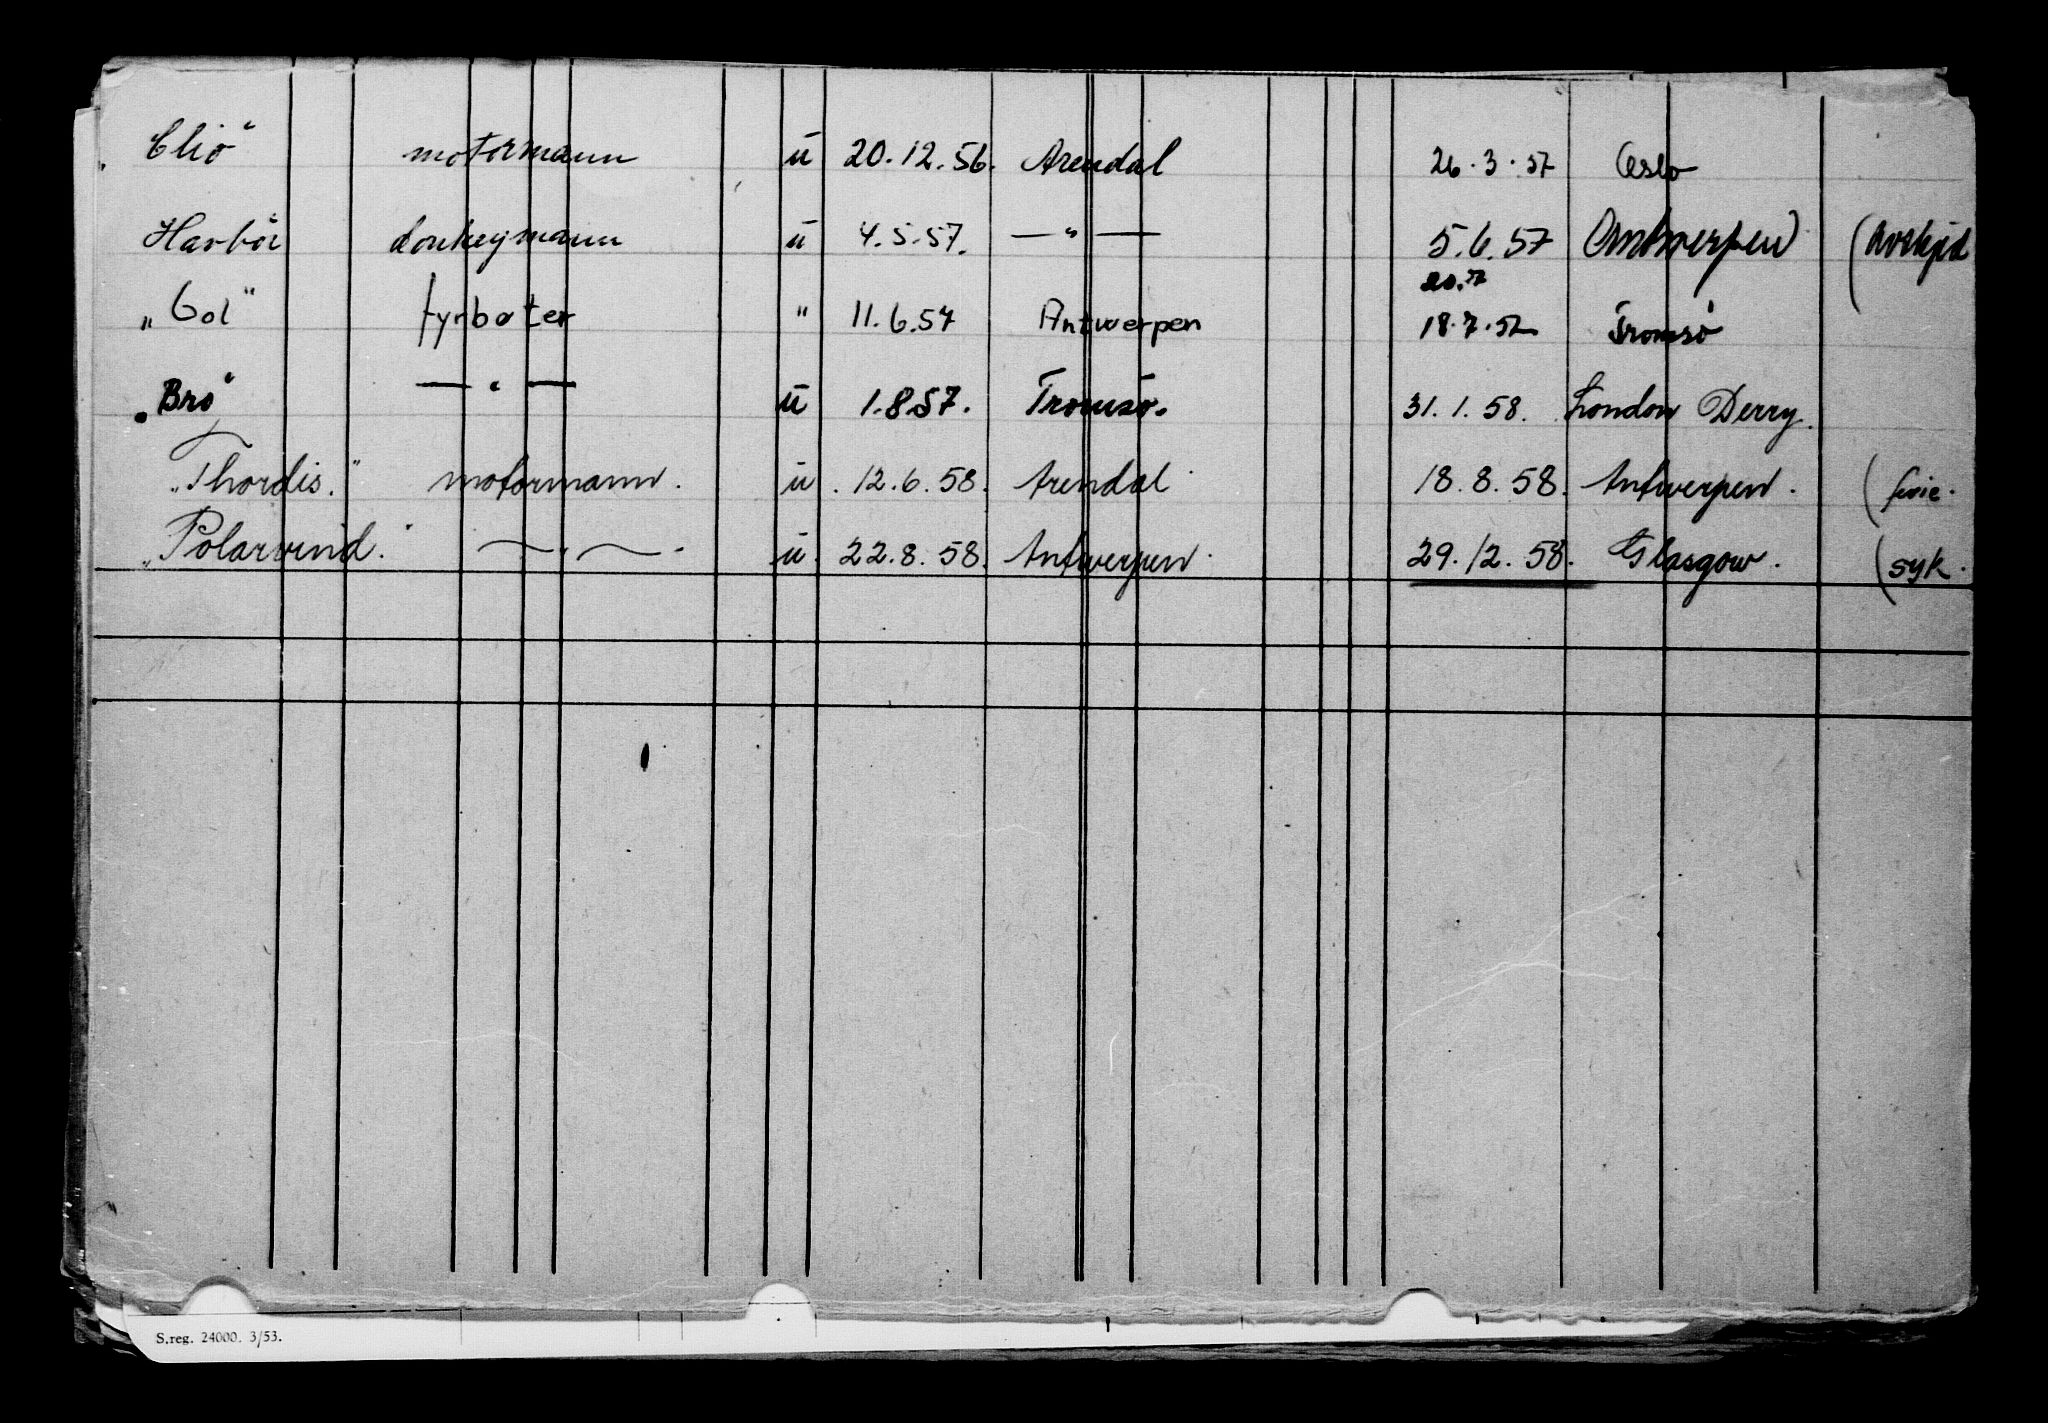 „Clio“ motormann ū 20.12.56. Arendal 26.3.57 Oslo
Havbör donkeymann ū 4.5.57. —"— 5.6.57 Antwerpen (Avskjed
20.7
„Gol" fyrbøter " 11.6.57 Antwerpen 18.7.57 Tromsö
„Bro“ —"— ū 1.8.57. Tromsö. 31.1.58. London Derry.
„Thordis." motormann. ū. 12.6.58. Arendal 18.8.58. Antwerpen. (ferie.
„Polarvind." —"—. ū. 22.8.58. Antwerpen. 29.12.58. Glasgow. (syk.
S.reg. 24000. 3/53.